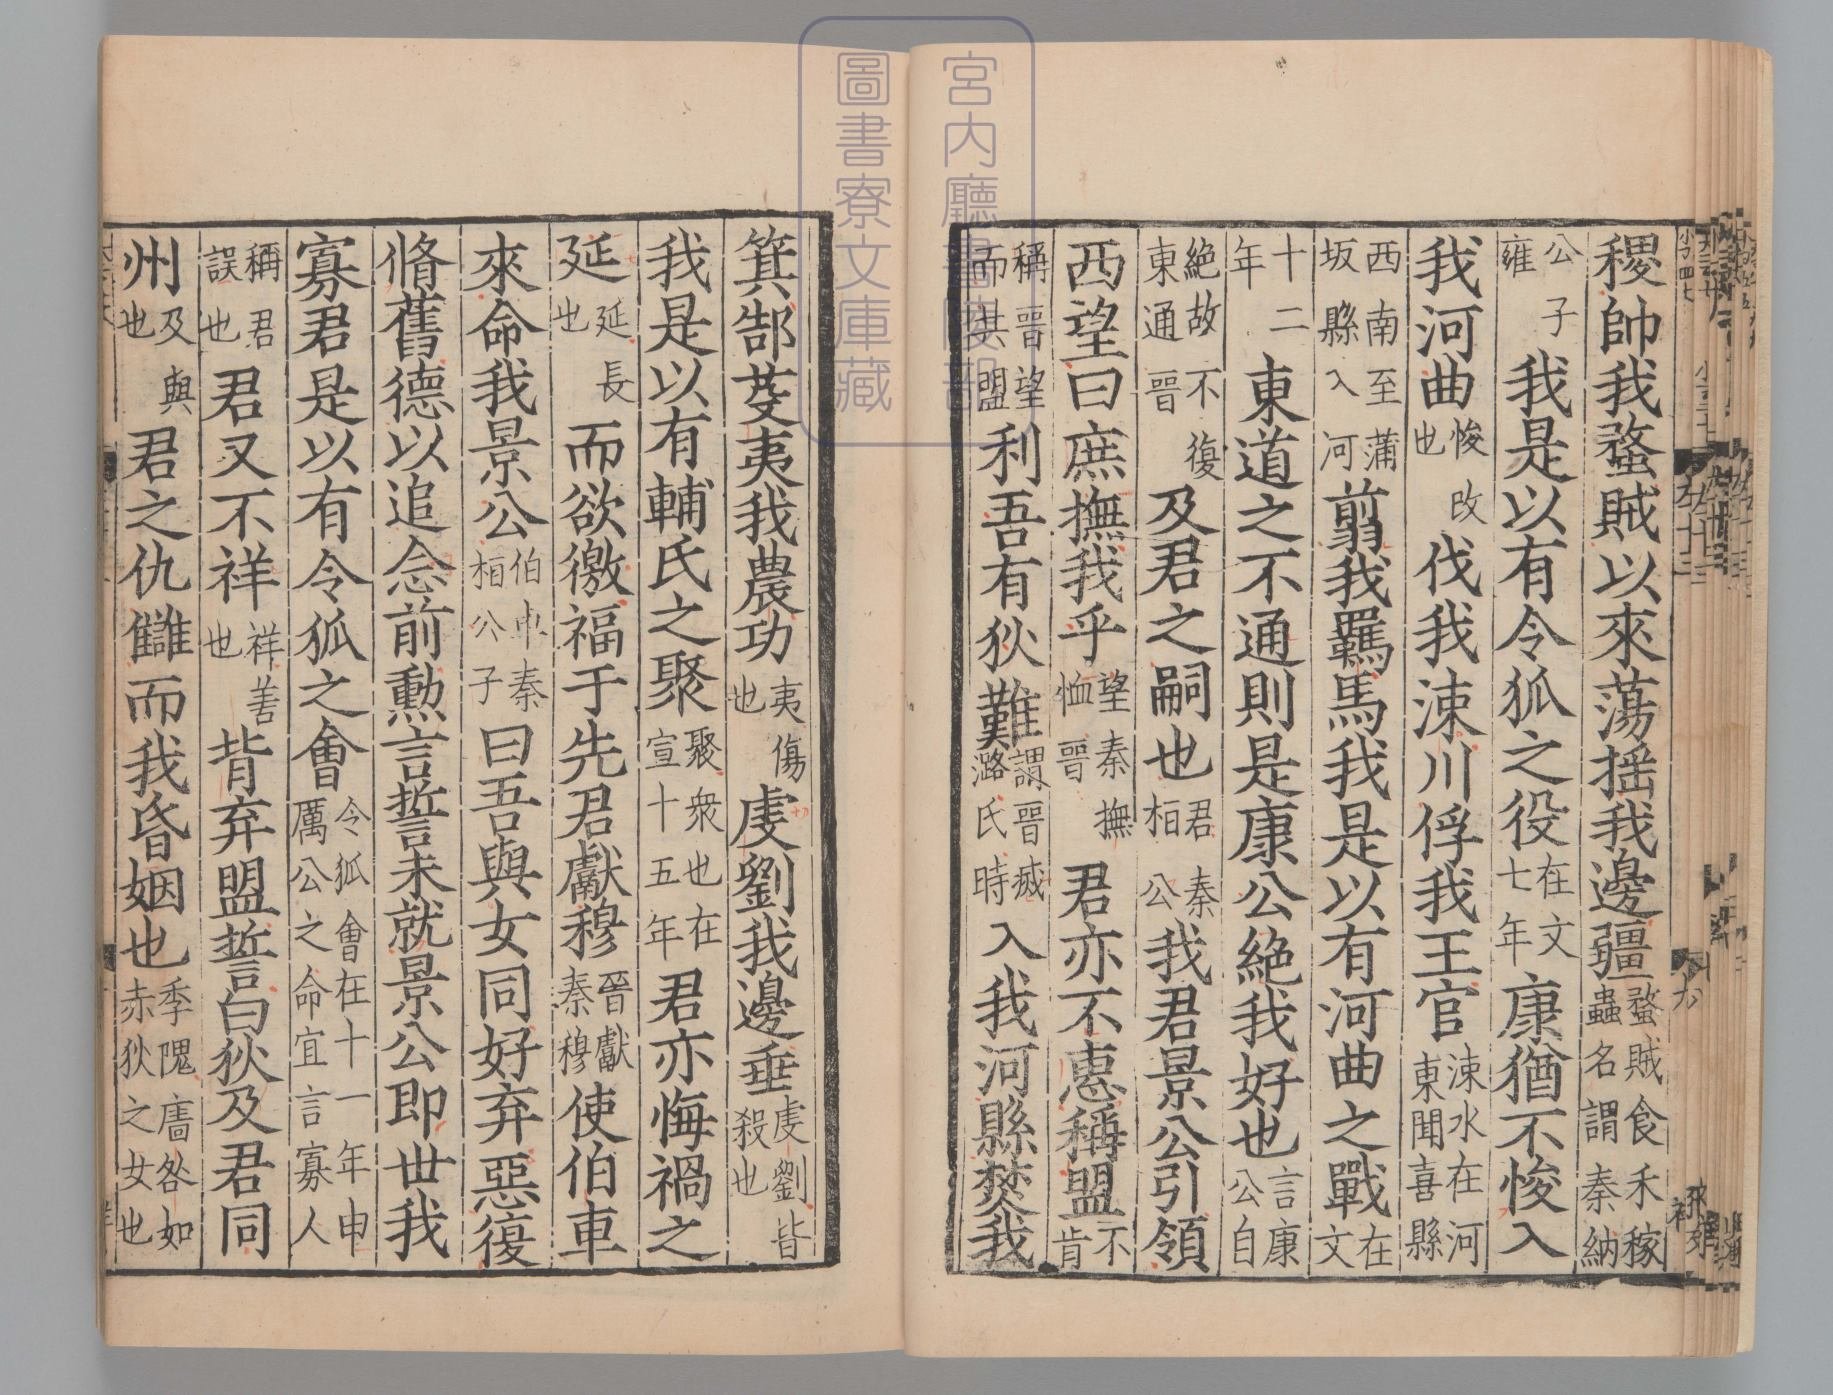 宮内廳書陵部
圖書寮文庫藏
稷帥我蝥賊以來蕩揺我邊疆蝥賊食禾稼蟲名謂秦納
公子雍我是以有令狐之役在文七年康猶不悛入
我河曲悛改也伐我涑川俘我王官涑水在河東聞喜縣
西南至蒲坂縣入河翦我羈馬我是以有河曲之戰在文
十二年東道之不通則是康公絶我好也言康公自
絶故不復東通晉及君之嗣也君秦桓公我君景公引領
西望曰庶撫我乎望秦撫恤晉君亦不惠稱盟不肯
稱晉望而共盟利吾有狄難謂晉滅潞氏時入我河縣焚我
箕郜芟夷我農功夷傷也虔劉我邊垂虔劉皆殺也
我是以有輔氏之聚聚衆也在宣十五年君亦悔禍之
延延長也而欲徼福于先君獻穆晉獻秦穆使伯車
來命我景公伯車秦桓公子曰吾與女同好弃惡復
脩舊德以追念前勳言誓未就景公即世我
寡君是以有令狐之會令狐會在十一年申厲公之命宜言寡人
稱君誤也君又不祥祥善也背弃盟誓白狄及君同
州及與也君之仇讎而我昏姻也季隗廧咎如赤狄之女也